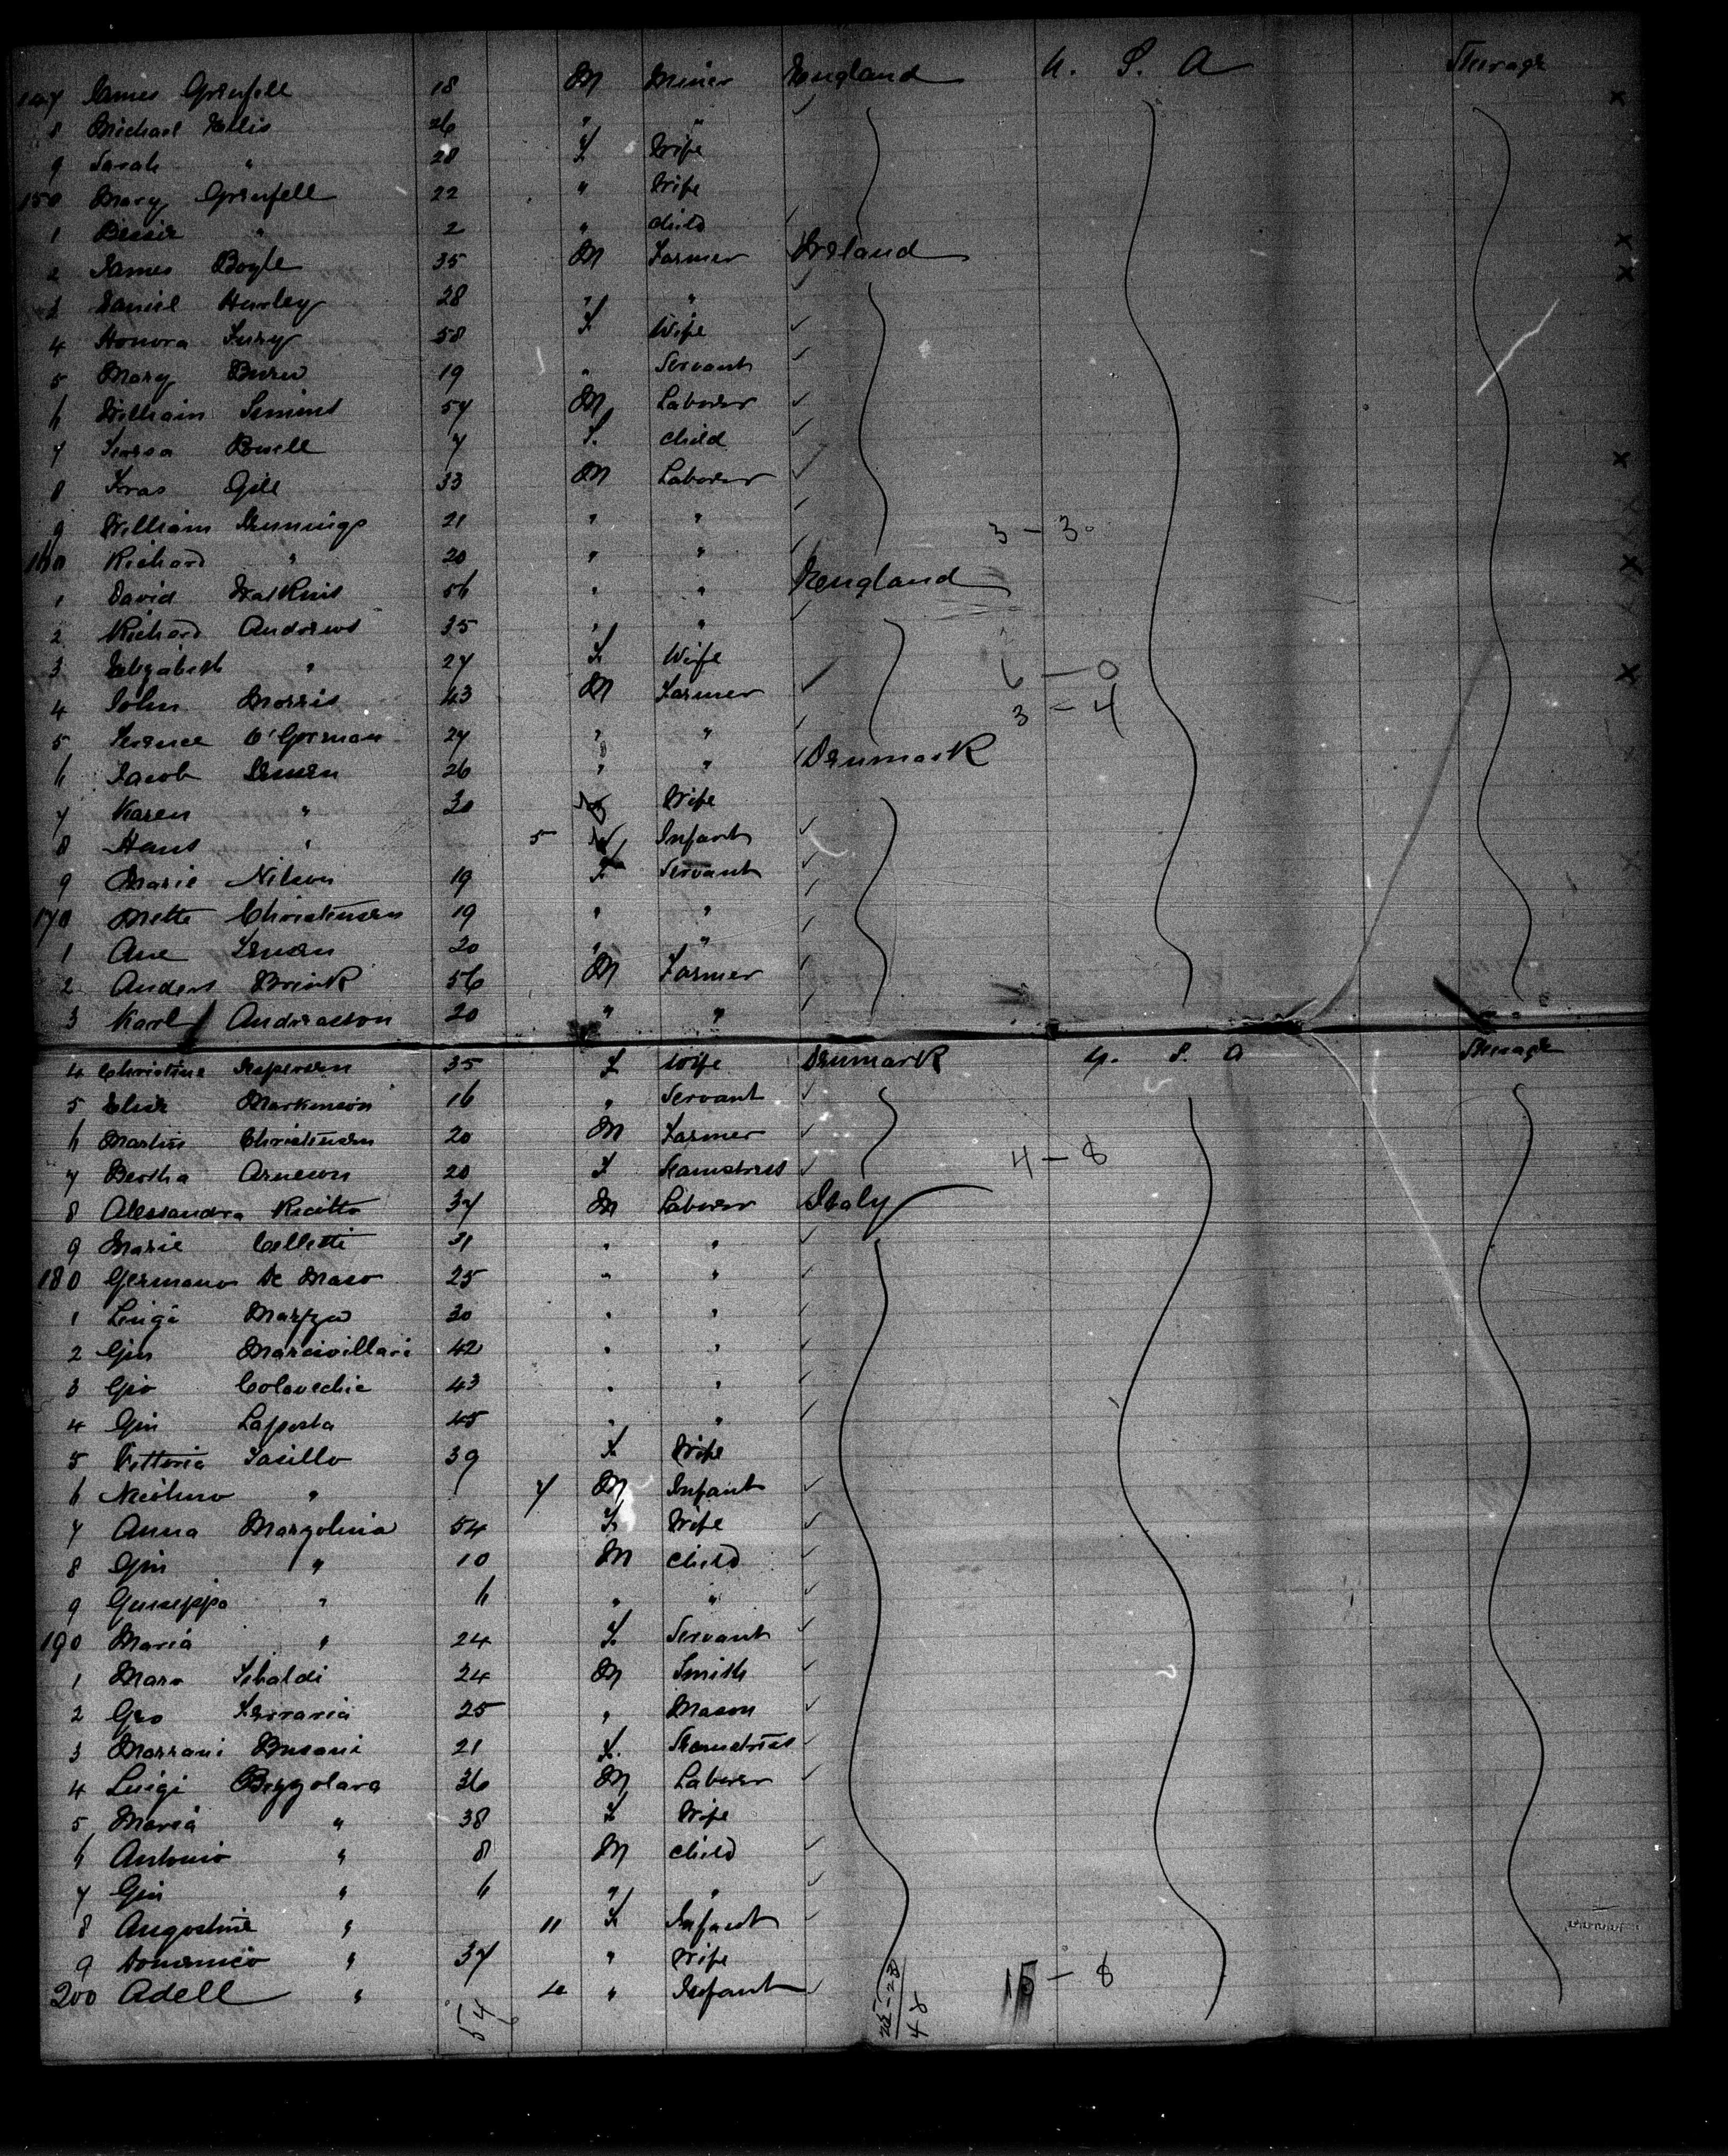 147 James Grenfell 18 M Miner England U. S. A Steerage
8 Michael Ellis 26 " " ✓
9 Sarah " 28 F Wife
150 Mary Grenfell 22 " Wife
1 Bessie " 2 " child ✓
2 James Boyle 35 M Farmer Ireland
3 Daniel Hurley 28 " " ✓
4 Honora Fury 58 F Wife ✓
5 Mary Burn 19 " Servant ✓
6 William 54 M Laborer ✓
7 7 F. child ✓
8 Fras Gill 33 M Laborer ✓
9 William Jennings 21 " " ✓
3 - 3
160 Richard " 20 " " ✓
1 David Watkins 56 " " England
2 Richard Andrews 35 " " ✓
3 Elizabeth " 27 F Wife
6 - 0
4 John Morris 43 M Farmer ✓
3 - 4
5 Terence O'Gorman 27 " " ✓
6 Jacob Jensen 26 " " Denmark
7 Karen " 30 Wife
8 Hans " 5 Infant ✓
9 Marie Nilsen 19 F Servant ✓
170 Mette Christensen 19 " " ✓
1 Ane Jensen 20 " " ✓
2 Anders Brink 56 M Farmer ✓
3 Karl Andreasson 20 " " ✓
4 Christine Jespersen 35 F Wife Denmark U. S. A Steerage
5 Elise Markenson 16 " Servant ✓
6 Martin Christensen 20 M Farmer ✓
7 Bertha Arneson 20 F Seamstress ✓
4 - 8
8 Alessandra Ricitto 37 M Laborer Italy
9 Marie Celletti 31 " " ✓
180 Germano De Maso 25 " " ✓
1 Luigi 30 " " ✓
2 Gin Marcivillari 42 " " ✓
3 Gio Colavechie 43 " " ✓
4 Gin Laposta 45 " " ✓
5 Vittoria Fasillo 39 F Wife
6 " 7 M Infant ✓
7 Anna Margolina 54 F Wife ✓
8 Gin " 10 M child ✓
9 Guiseppe " 6 " " ✓
190 Maria " 24 F Servant ✓
1 Maro Tibaldi 24 M Smith ✓
2 Geo Ferraria 25 " Mason ✓
3 Marrani Busani 21 F. Seamstress ✓
4 Luigi Bezzolara 36 M Laborer ✓
5 Maria " 38 F Wife
6 Antonio " 8 M child ✓
7 Gin " 6 " " ✓
8 Angostine " 11 F Infant ✓
9 Domenico " 37 " Wife
200 Adell " 4 " Infant ✓
15 - 8
54
25-23
48